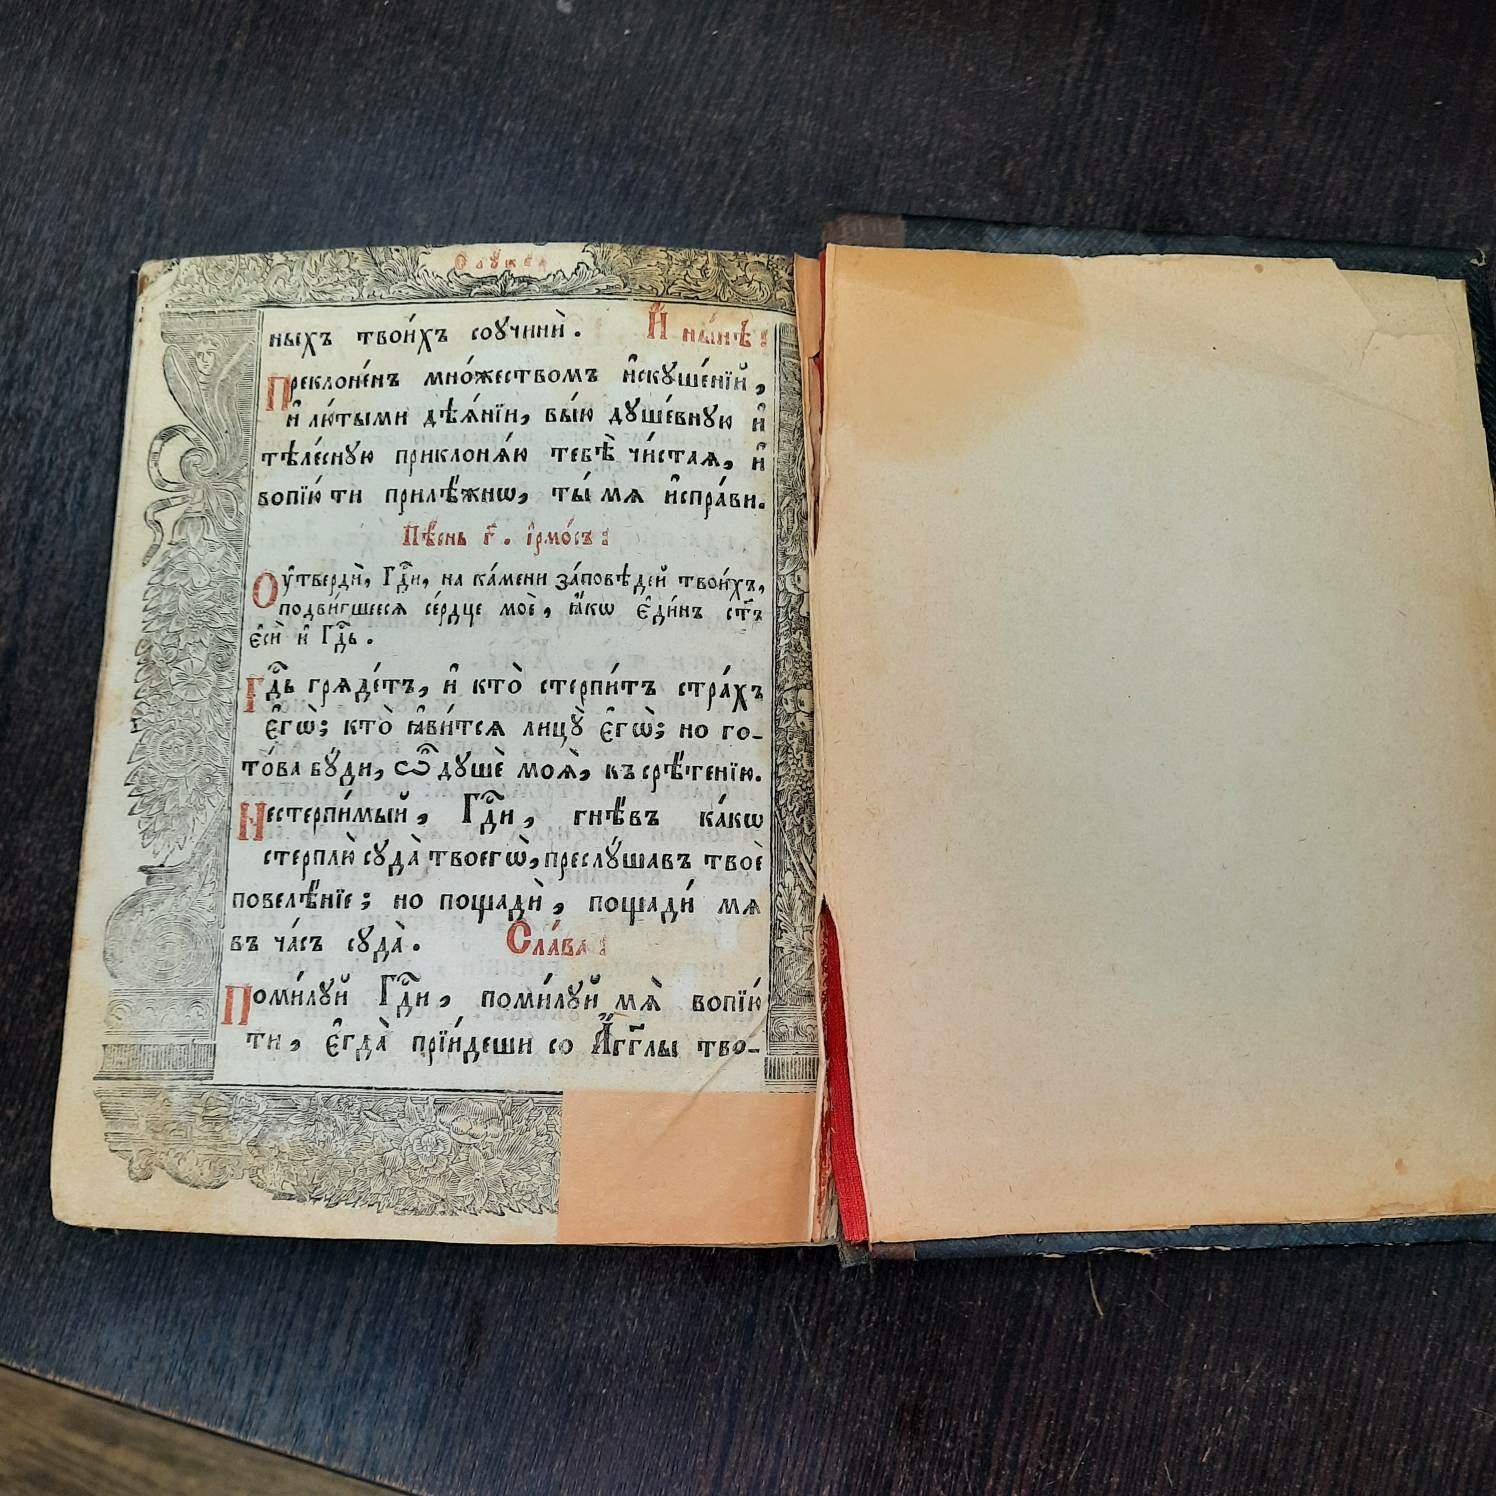 ныхъ твои́хъ соучинѝ. И҆ ны́нѣ:
Преклоне́нъ мно́жествомъ и҆скꙋше́нїй,
и҆ лю́тыми дѣѧ́нїи, вы́ю дꙋше́внꙋю и҆
тѣле́снꙋю приклонѧ́ю тебѣ̀ чи́стаѧ, и҆
вопїю́ ти прилѣ́жнѡ, ты́ мѧ и҆спра́ви.
Пѣ́снь г҃. І҆рмо́съ:
Оу҆твердѝ, Гдⷭ҇и, на ка́мени за́повѣдей твои́хъ,
подви́гшеесѧ се́рдце моѐ, ꙗ҆́кѡ є҆ди́нъ ст҃ъ
є҆сѝ и҆ Гдⷭ҇ь.
Гдⷭ҇ь грѧде́тъ, и҆ кто̀ стерпи́тъ стра́хъ
є҆гѡ̀; кто̀ ꙗ҆ви́тсѧ лицꙋ̀ є҆гѡ̀; но го-
то́ва бꙋ́ди, ѽ дꙋшѐ моѧ̀, къ срѣ́тенїю.
Нестерпи́мый, Гдⷭ҇и, гнѣ́въ ка́кѡ
стерплю̀ сꙋда̀ твоегѡ̀, преслꙋ́шавъ твоѐ
повелѣ́нїе; но пощадѝ, пощади́ мѧ
въ ча́съ сꙋда̀. Сла́ва:
Поми́лꙋй Гдⷭ҇и, поми́лꙋй мѧ̀ вопїю́
ти, є҆гда̀ прїи́деши со А҆́гг҃лы тво-